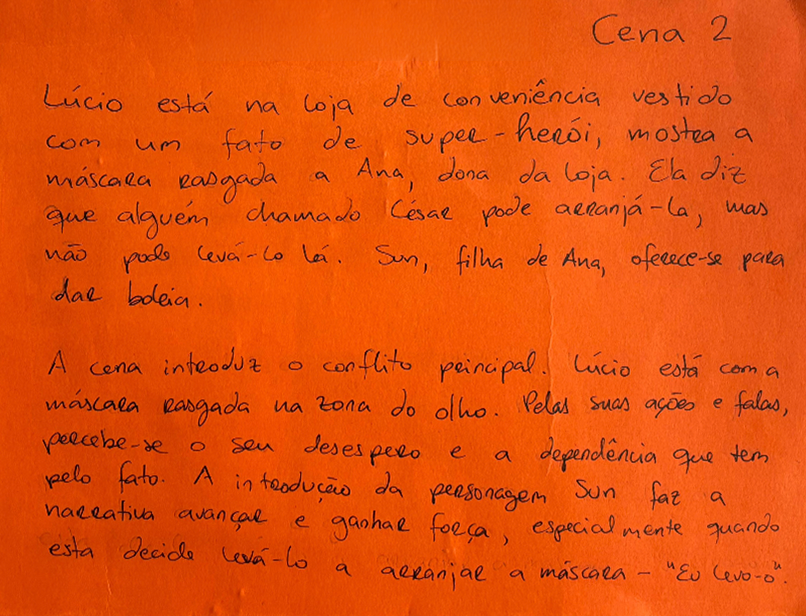 Cena 2
Lúcio está na loja de conveniência vestido
com um fato de super-herói, mostra a
máscara rasgada a Ana, dona da loja. Ela diz
que alguém chamado César pode arranjá-la, mas
não pode levá-lo lá. Sun, filha de Ana, oferece-se para
dar boleia.
A cena introduz o conflito principal. Lúcio está com a
máscara rasgada na zona do olho. Pelas suas ações e falas,
percebe-se o seu desespero e a dependência que tem
pelo fato. A introdução da personagem Sun faz a
narrativa avançar e ganhar força, especialmente quando
esta decide levá-lo a arranjar a máscara - "Eu levo-o".